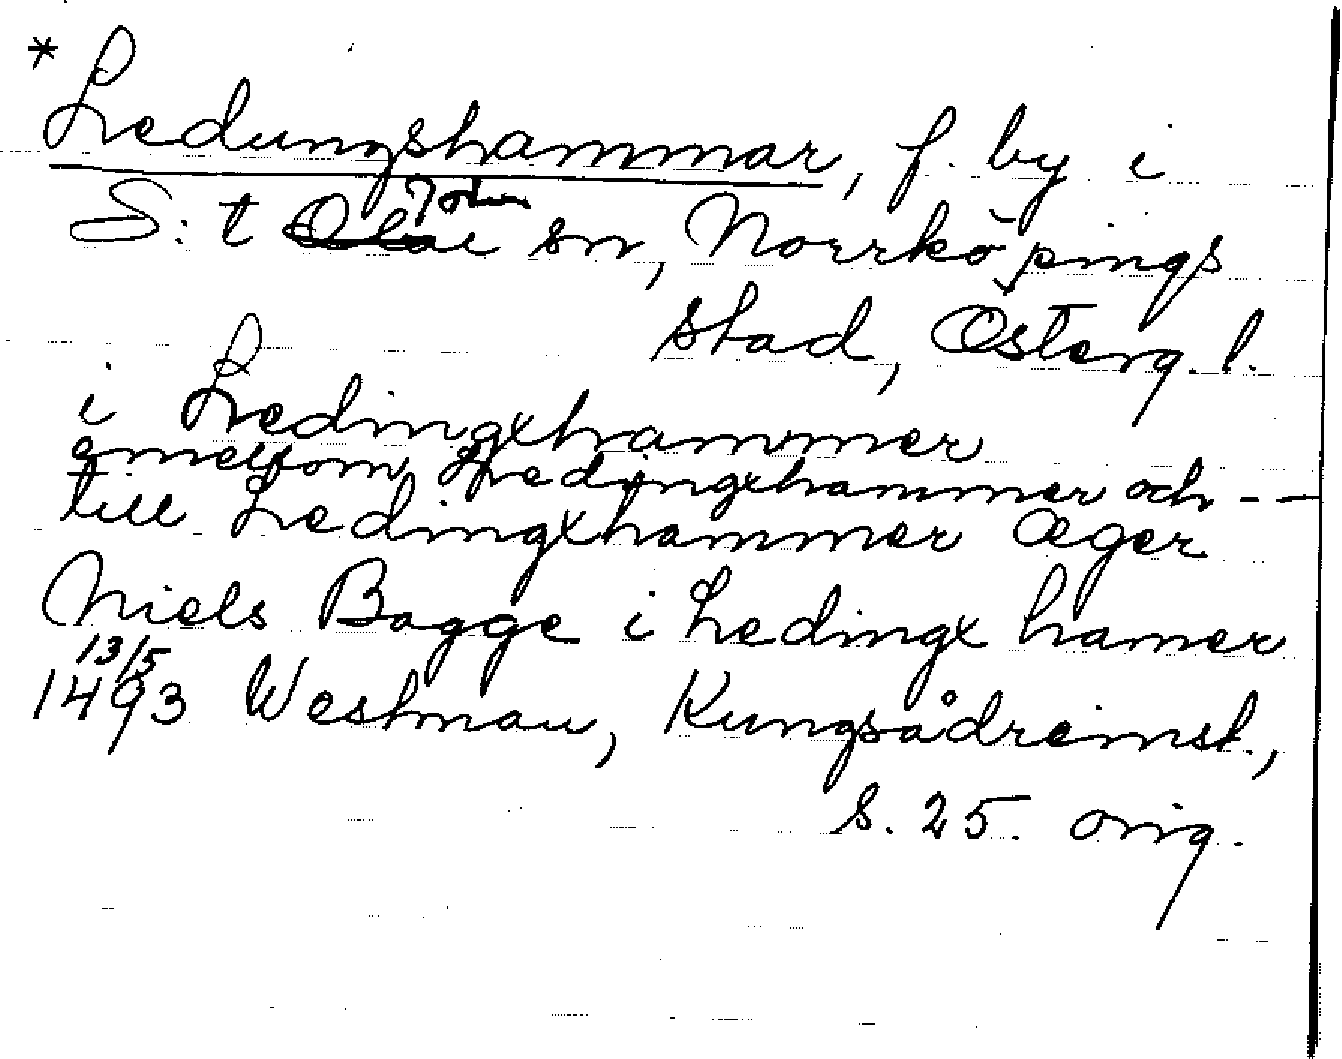 * Ledungshammar, f. by i
S:t Olai Johs sn, Norrköpings
stad, Österg. l.
i Ledingxhammer
emellom Ledingxhammer och - -
till Ledingxhammer æger
Niels Bagge i Ledingx hamer
13/5
1493 Westman, Kungsådreinst.,
s. 25. orig.